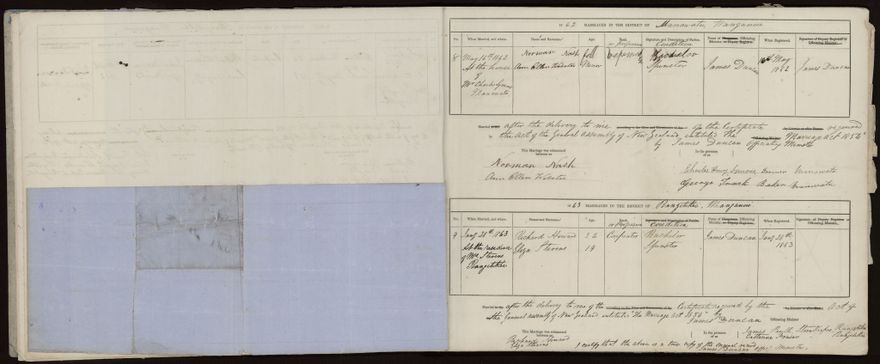 1862 MARRIAGES IN THE DISTRICT OF Manawatu, Wanganui
No. When Married, and where. Name and Surname. Age. Rank or Profession Signature and Description of Parties. Condition Name of Officiating Minister, or Deputy Registrar. When Registered. Signature of Deputy Registrar or Officiating Minister.
8 May 16th 1862 Norman Nash full Bachelor James Duncan 16th May 1862 James Duncan
At the house Ann Ellen Webster Minor Spinster
of
Mr Charles
Manawatu
Married after the delivery to me of the Certificate required
by the act of the General assembly of New Zealand, intituled The Marriage Act 1854
by James Duncan Officiating Minister
This Marriage was solemnized between us
In the presence of us
Norman Nash
Ann Ellen Webster
Charles Henry Farmer Manawatu
George Baker Manawatu
1863 MARRIAGES IN THE DISTRICT OF Rangitikei, Wanganui
No. When Married, and where. Name and Surname. Age. Rank or Profession Signature and Description of Parties. Condition Name of Officiating Minister, or Deputy Registrar. When Registered. Signature of Deputy Registrar or Officiating Minister.
9 Jany 28th 1863 Richard 22 Carpenter Bachelor James Duncan Jany 28th 1863
At the residence Eliza Stevens 19 Spinster
of Mr Stevens
Rangitikei
Married after the delivery to me of the Certificate required by the Act of
the General assembly of New Zealand intituled The Marriage Act 1854 by
James Duncan Officiating Minister
This Marriage was solemnized between us
In the presence of us
Richard
Eliza Stevens
James Rangitikei
Catherine Fraser Rangitikei
I certify that the above is a true copy of the original record
James Duncan offg Minister